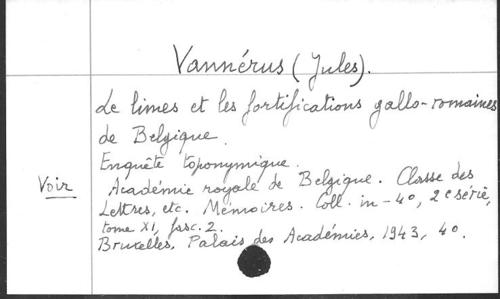 Vannérus (Jules).
Le limes et les fortifications gallo-romaines
de Belgique.
Enquête toponymique.
Voir
Académie royale de Belgique. Classe des
Lettres, etc. Mémoires. Coll. in-4o, 2e série,
tome XI, fasc. 2.
Bruxelles, Palais des Académies, 1943, 4o.